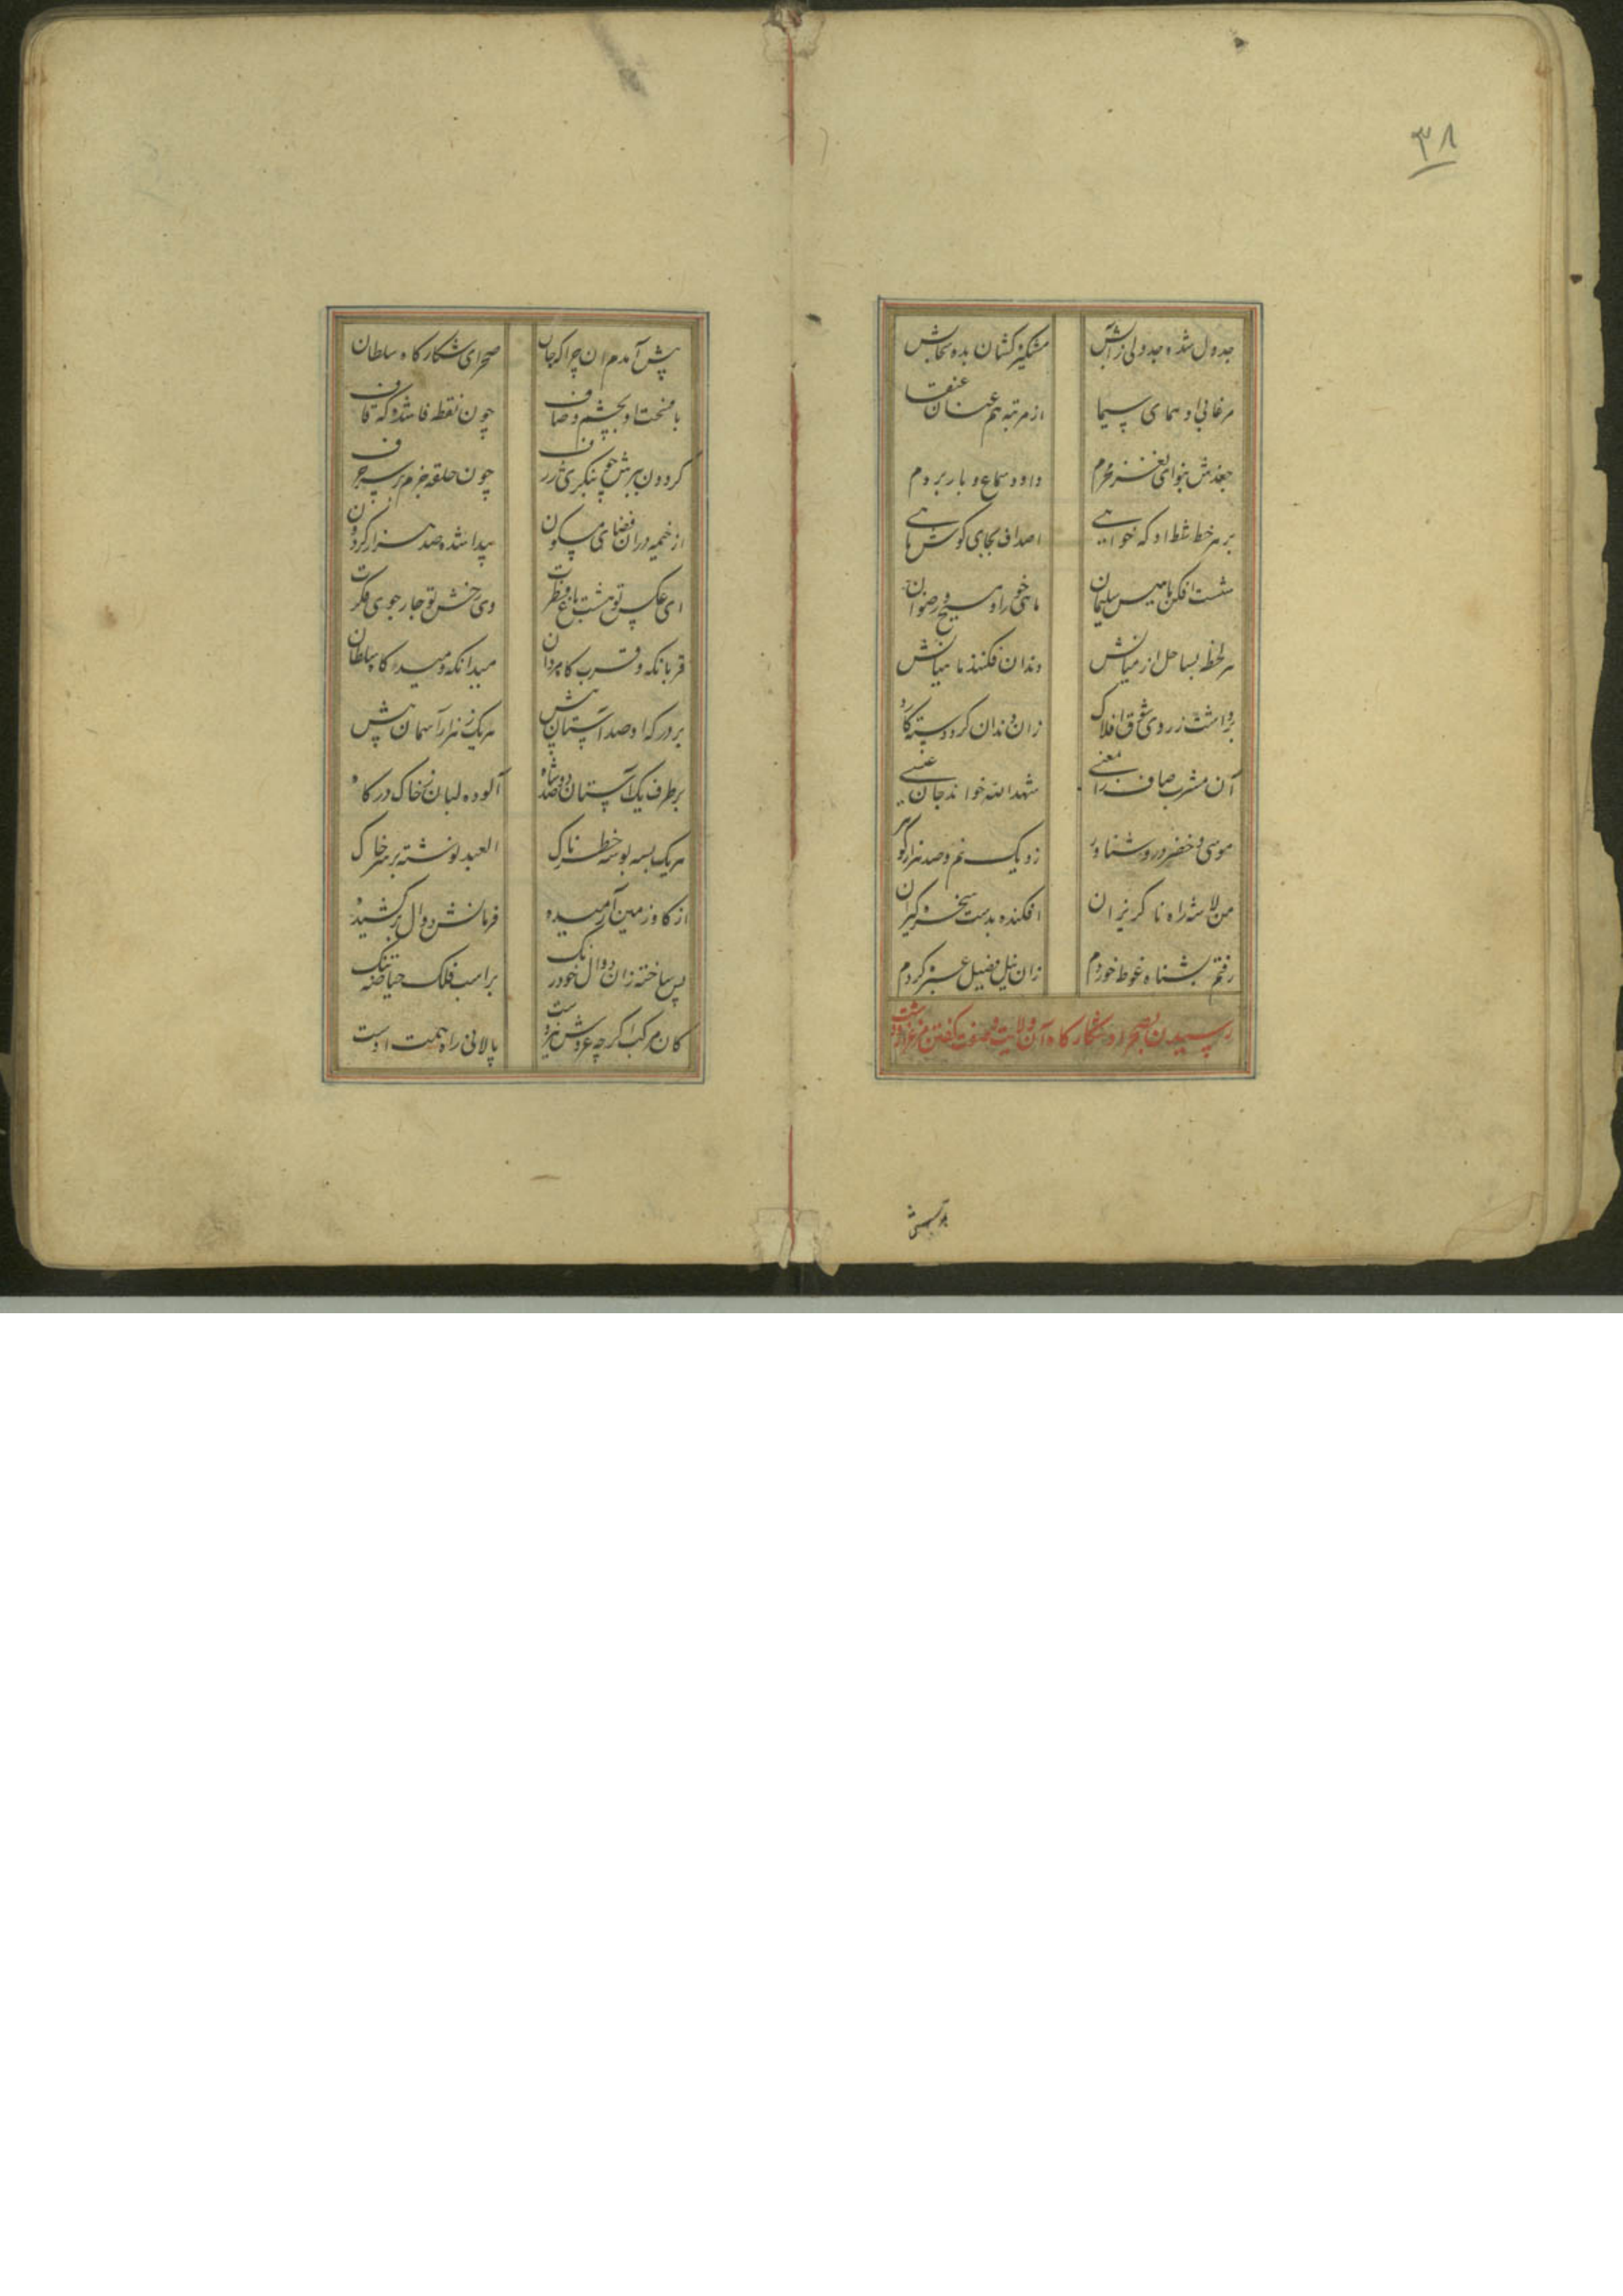 ۳۸
جدول شده جدولی ز آبش
مشکیزکشان بده سحابش
مرغابی او همای سیما
از مرتبه هم عنان عنقا
بنوای نغز محرم
داود سماع و باربردم
بر هر خط شط او که خواهی
اصداف بجای گوش ماهی
شست افکن ماهیش سلیمان
ماهی خور او مسیح و رضوان
هر لحظه بساحل از میانش
دندان فکنند ماهیانش
برداشت ز روی شوق افلاک
زان دندان کرد دسته
آن مشرب صاف را ز معنی
شهد الله خواند جان عیسی
موسی و خضر درو شناور
زو یک نم و صد هزار گوهر
من لاشه راه ناگریزان
افکنده بدست
رفتم بشناه غوطه خوردم
زان نیل غسل کردم
رسیدن بصحرا و شکارگاه آن ولایت و صفت گفتن
پیش آمدم آن چراگه جان
صحرای شکارگاه سلطان
با فسحت او بچشم وصاف
چون نقطه فا شده که قاف
گردون ببرش چو بنگری ژرف
چون حلقه جزم بر سر حرف
از خیمه در آن فضای مسکون
پیدا شده صد هزار گردون
ای عکس تو هشت باغ فطرت
وی رخش تو چار جوی فکرت
قربانگه و قرب کامرانان
میدانگه و صیدگاه سلطان
بر درگه او صد آستان بیش
هر یک ز هزار آسمان بیش
بر طرف یک آستان دو صد شاه
آلوده لبان ز خاک درگاه
هر یک بسه بوسه خطرناک
العبد نوشته بر سر خاک
از گاو زمین آرمیده
فرمانش دوال برکشیده
پس ساخته زان دوال خود رنگ
بر اسب فلک حیاصه تنگ
کان مرکب اگر چه
پالانی راه همت اوست